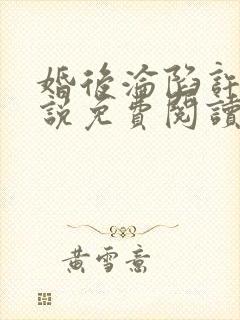 婚後淪陷許
說免費閱讀
黃雪意